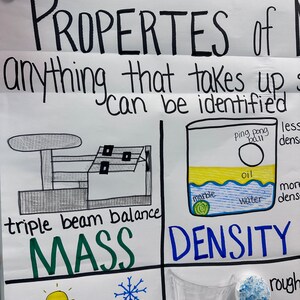 PROPERTES of
anything that takes up
can be identified
ping pong
ball
less
dens
oil
marble
water
more
dens
triple beam balance
MASS
DENSITY
rough